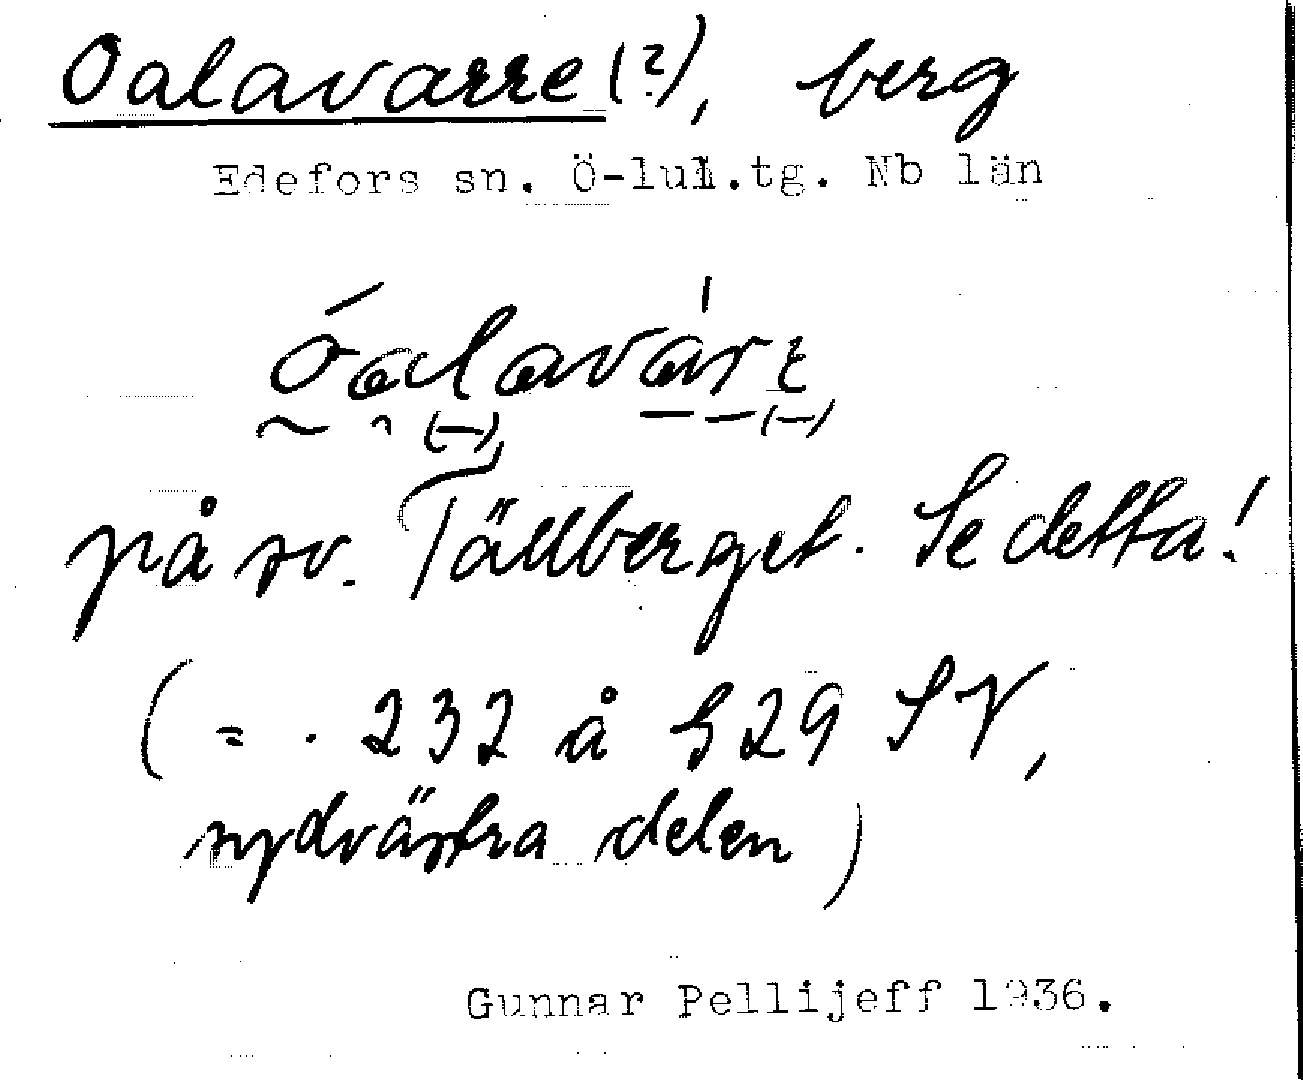 Oalavarre (?), berg
Edefors sn. Ö-lul.tg. Nb län
óalavárɛ
på sv. Tällberget. Se detta!
( = . 232 å § 29 SV,
sydvästra delen)
Gunnar Pellijeff 1936.